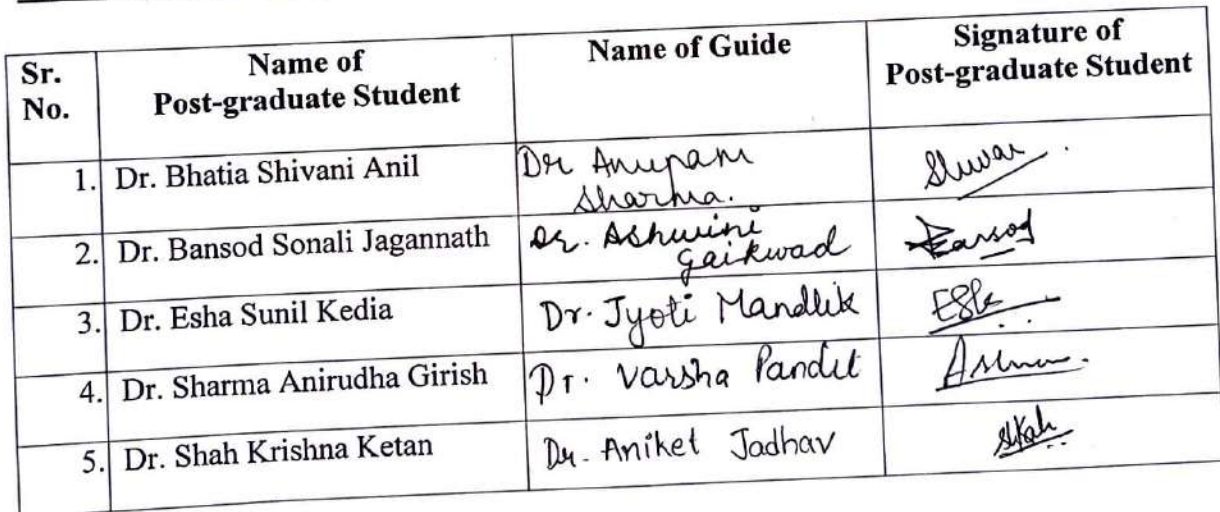 Sr. No. Name of Post-graduate Student Name of Guide Signature of Post-graduate Student
1. Dr. Bhatia Shivani Anil Dr Anupam Sharma.
2. Dr. Bansod Sonali Jagannath Dr. Ashwini Gaikwad Bansod
3. Dr. Esha Sunil Kedia Dr. Jyoti Mandlik
4. Dr. Sharma Anirudha Girish Dr. Varsha Pandit
5. Dr. Shah Krishna Ketan Dr. Aniket Jadhav